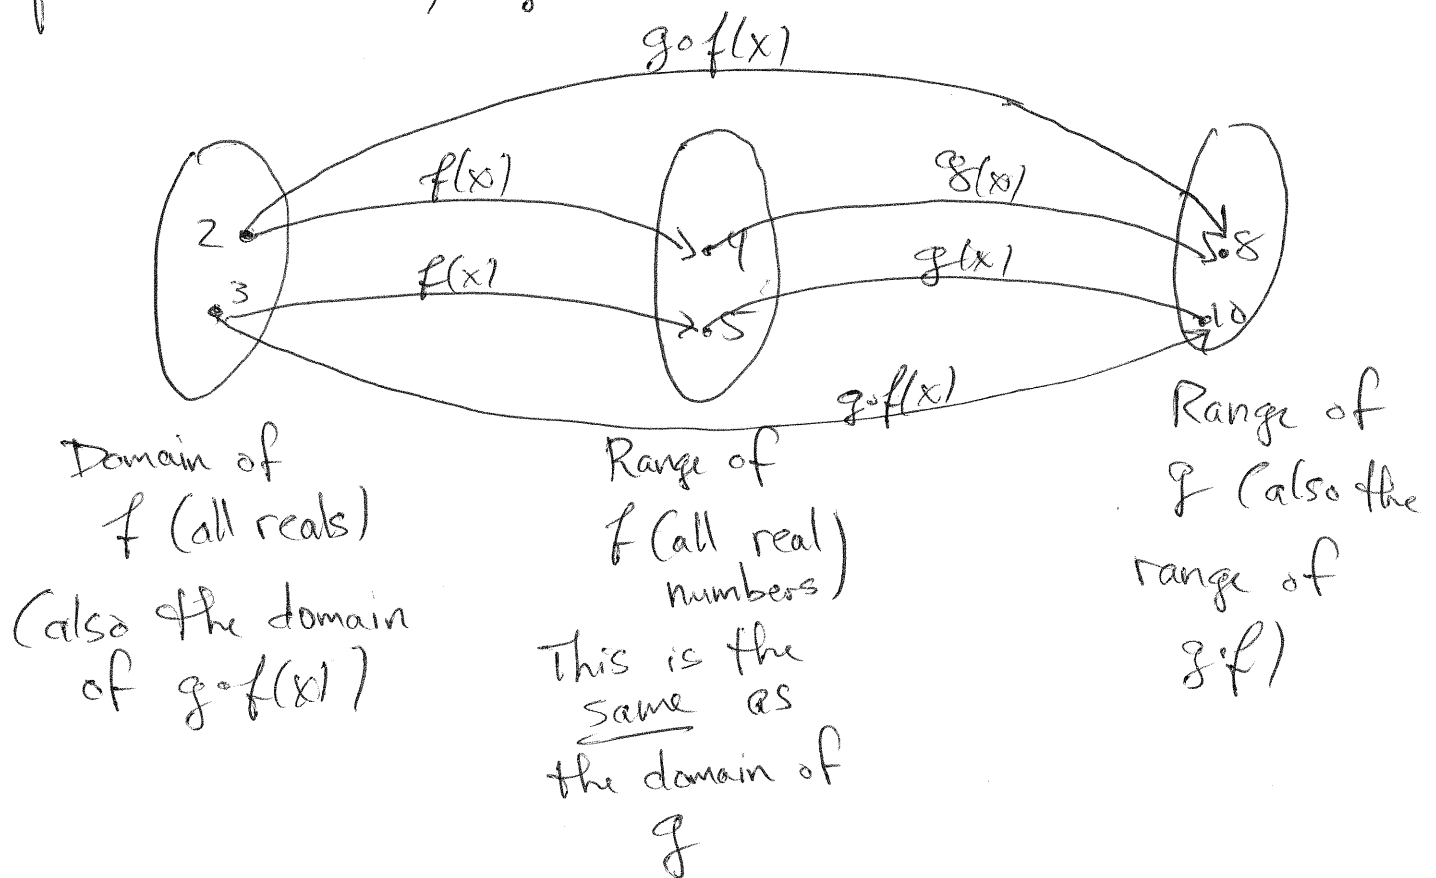 g∘f(x)
f(x)
g(x)
2
4
8
f(x)
g(x)
3
5
10
g∘f(x)
Domain of
f (all reals)
(also the domain
of g∘f(x))
Range of
f (all real
numbers)
This is the
same as
the domain of
g
Range of
g (also the
range of
g∘f)